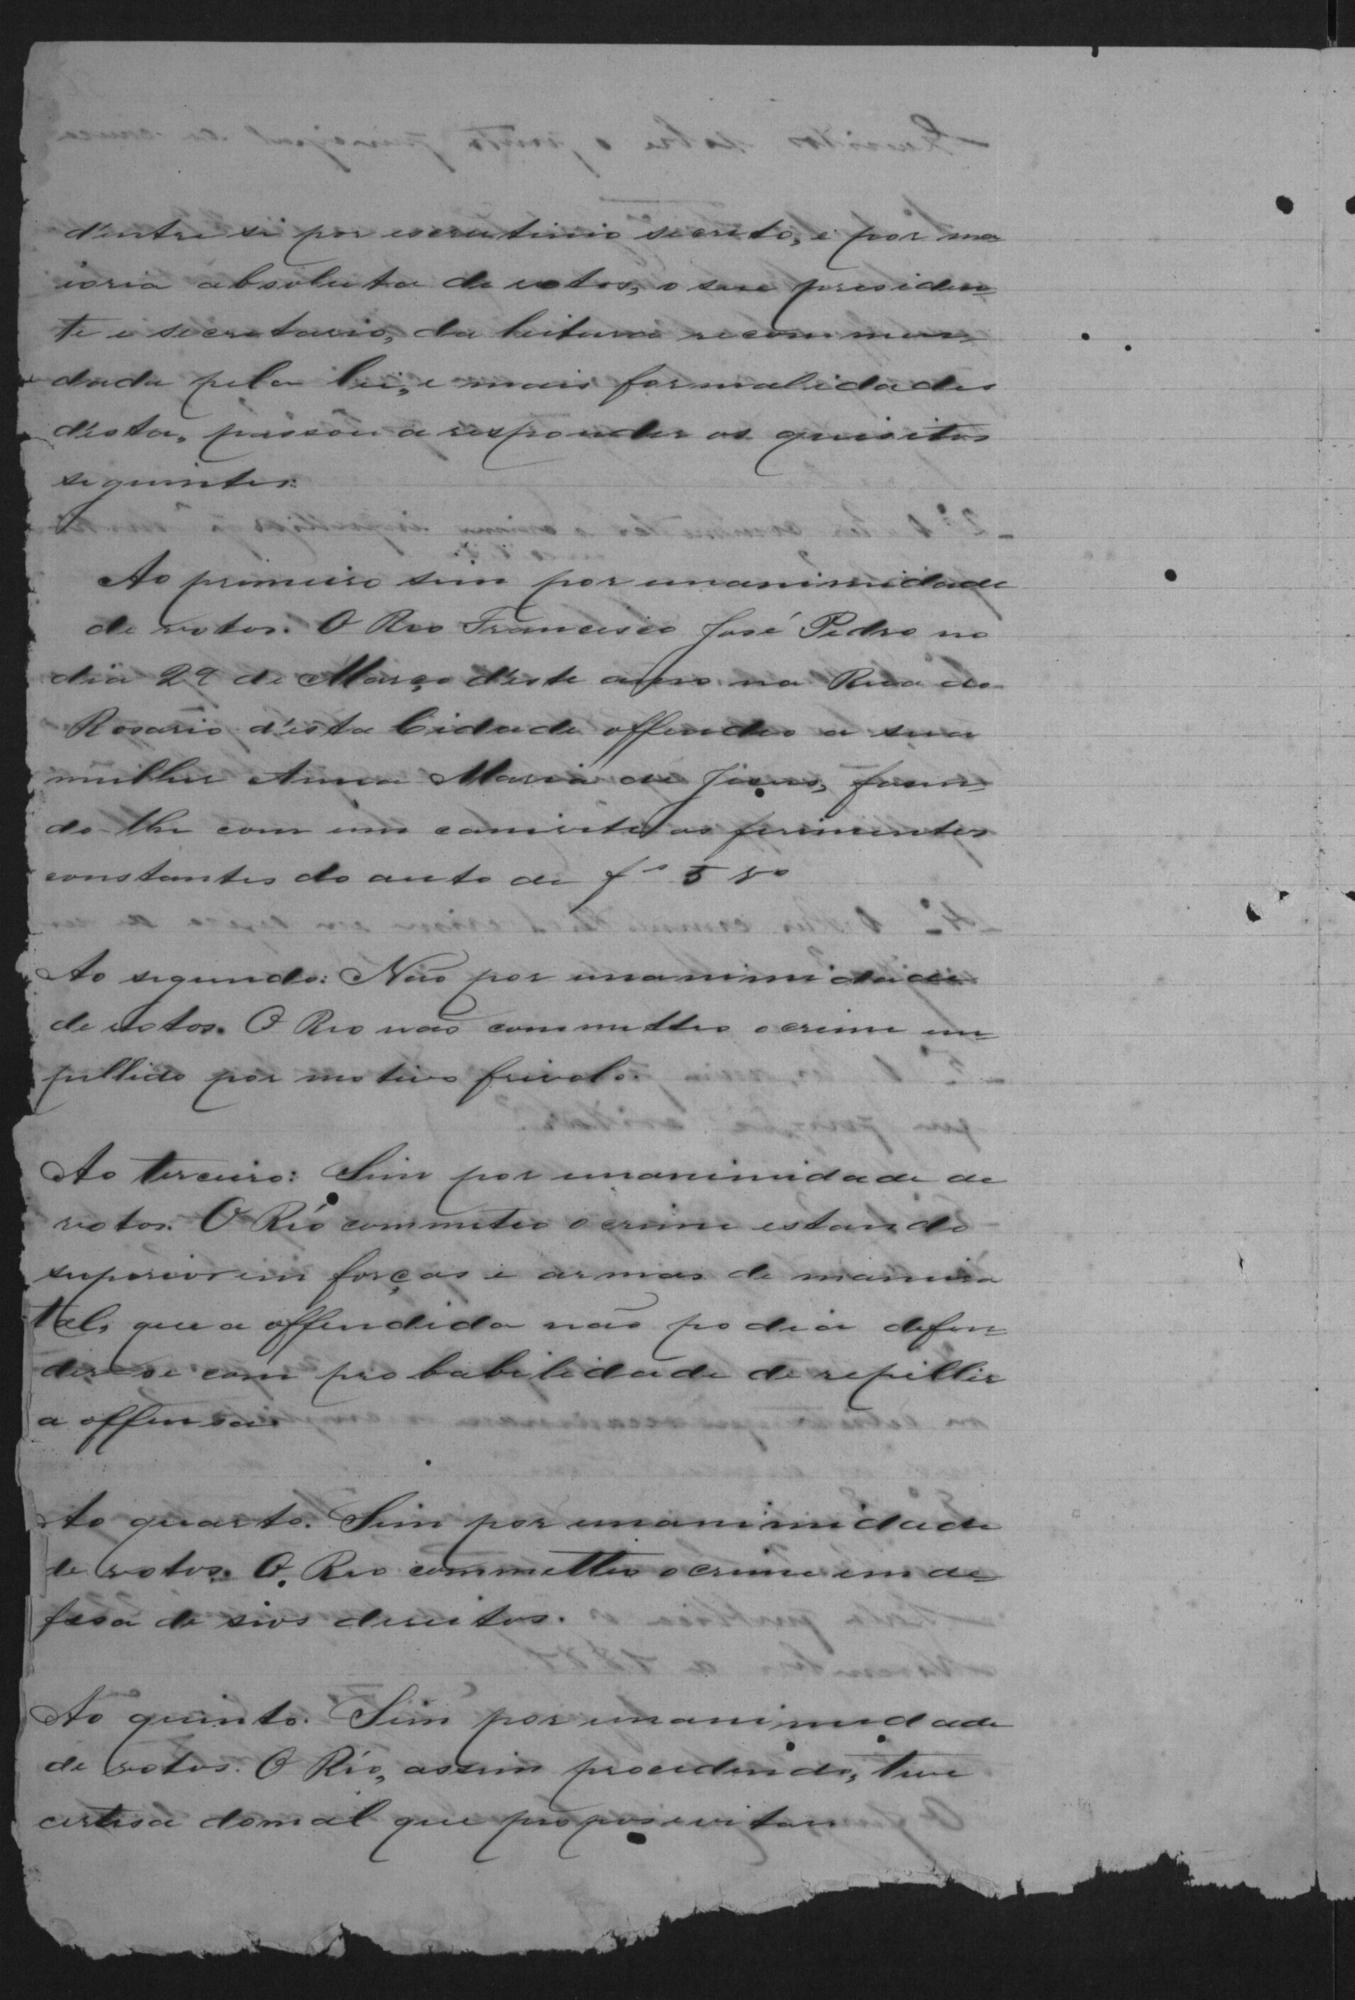 d'entre si por escrutinio secreto, e por ma
ioria absoluta de votos, o seu presiden-
te e secretario, da leitura recommen-
dada pela lei, e mais formalidades
d'esta, passou a responder os quisitos
seguintes:
Ao primeiro sim por unanimidade
de votos. O Reo Francisco José Pedro no
dia 29 de Março d'este anno na Rua do
Rosario d'esta Cidade offendeo a sua
mulher Anna Maria de Jesus, fasen-
do lhe com um canivete os ferimentos
constantes do auto de fs 5 vo
Ao segundo: Não por unanimidade
de votos. O Reo não commetteo o crime im-
pellido por motivo frivolo.
Ao terceiro: Sim por unanimidade de
votos. O Réo commeteo o crime estando
superior em forças e armas de maneira
tal, que a offendida não podia defen-
der-se com probabilidade de repellir
a offensa.
Ao quarto. Sim por unanimidade
de votos. O Reo commetteo o crime em de-
fesa de seos direitos.
Ao quinto. Sim por unanimidade
de votos. O Réo, assim procedendo, teve
certesa do mal que propos evitar